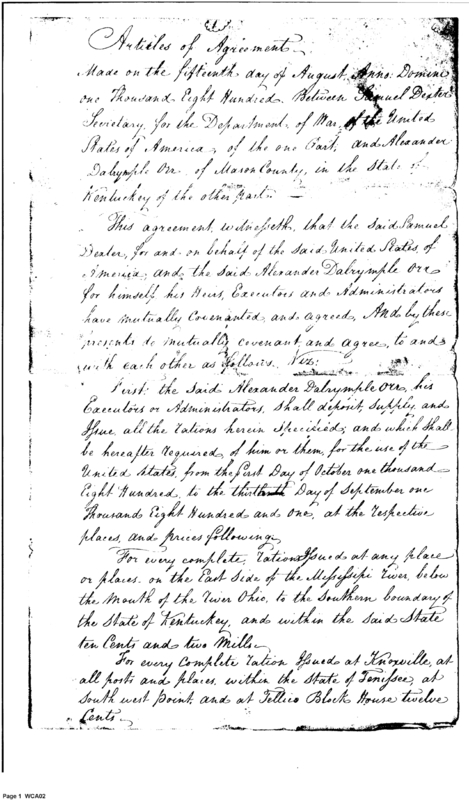 (1)
Articles of Agreement
Made on the fifteenth day of August, Anno: Domini
one Thousand Eight Hundred. Between Samuel Dexter
Secretary, for the Department, of War, of the United
States of America, of the one Part; and Alexander
Dalrymple Orr, of Mason County, in the State of
Kentuckey of the other part. —
This agreement, witnesseth, that the said Samuel
Dexter, for and on behalf of the said United States, of
America; and the said Alexander Dalrymple Orr
for himself, his Heirs, Executors and Administrators
have mutually covenanted, and agreed, And by these
presents do mutually covenant, and agree, to and
with each other as follows. Viz:
First: the said Alexander Dalrymple Orr, his
Executors or Administrators, shall deposit, supply, and
Issue, all the rations herein specified; and which shall
be hereafter required, of him or them, for the use of the
United States, from the first Day of October one thousand
Eight Hundred, to the thirtieth Day of September one
Thousand Eight Hundred and One, at the respective
places, and prices following.
For every complete, ration Issued at any place
or places, on the East Side of the Missisipi River, below
the Mouth of the River Ohio, to the Southern boundary of
the State of Kentuckey, and within the said State
ten Cents and two Mills.
For every Complete ration Issued at Knoxville, at
all posts and places, within the State of Tenessee, at
South west Point, and at Tellico Block House twelve
Cents.
Page 1 WCA02